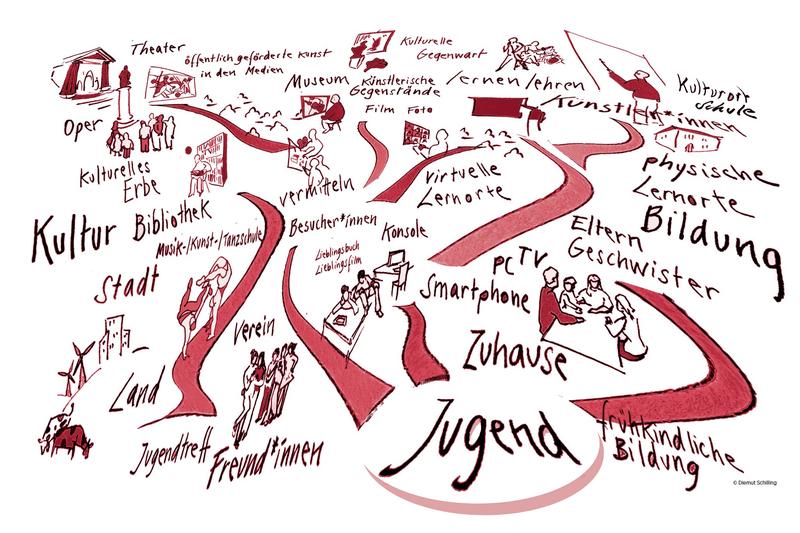 Theater
öffentlich geförderte Kunst
in den Medien
Kulturelle
Gegenwart
Museum
Künstlerische
Gegenstände
lernen/lehren
Kulturort
Schule
Film Foto
Künstler*innen
Oper
Kulturelles
Erbe
vermitteln
virtuelle
Lernorte
physische
Lernorte
Bildung
Kultur
Bibliothek
Musik-/Kunst-/Tanzschule
Besucher*innen
Konsole
Lieblingsbuch
Lieblingsfilm
Eltern
Geschwister
PC TV
Smartphone
Stadt
Verein
Zuhause
Land
Jugend
frühkindliche
Bildung
Jugendtreff
Freund*innen
© Diemut Schilling